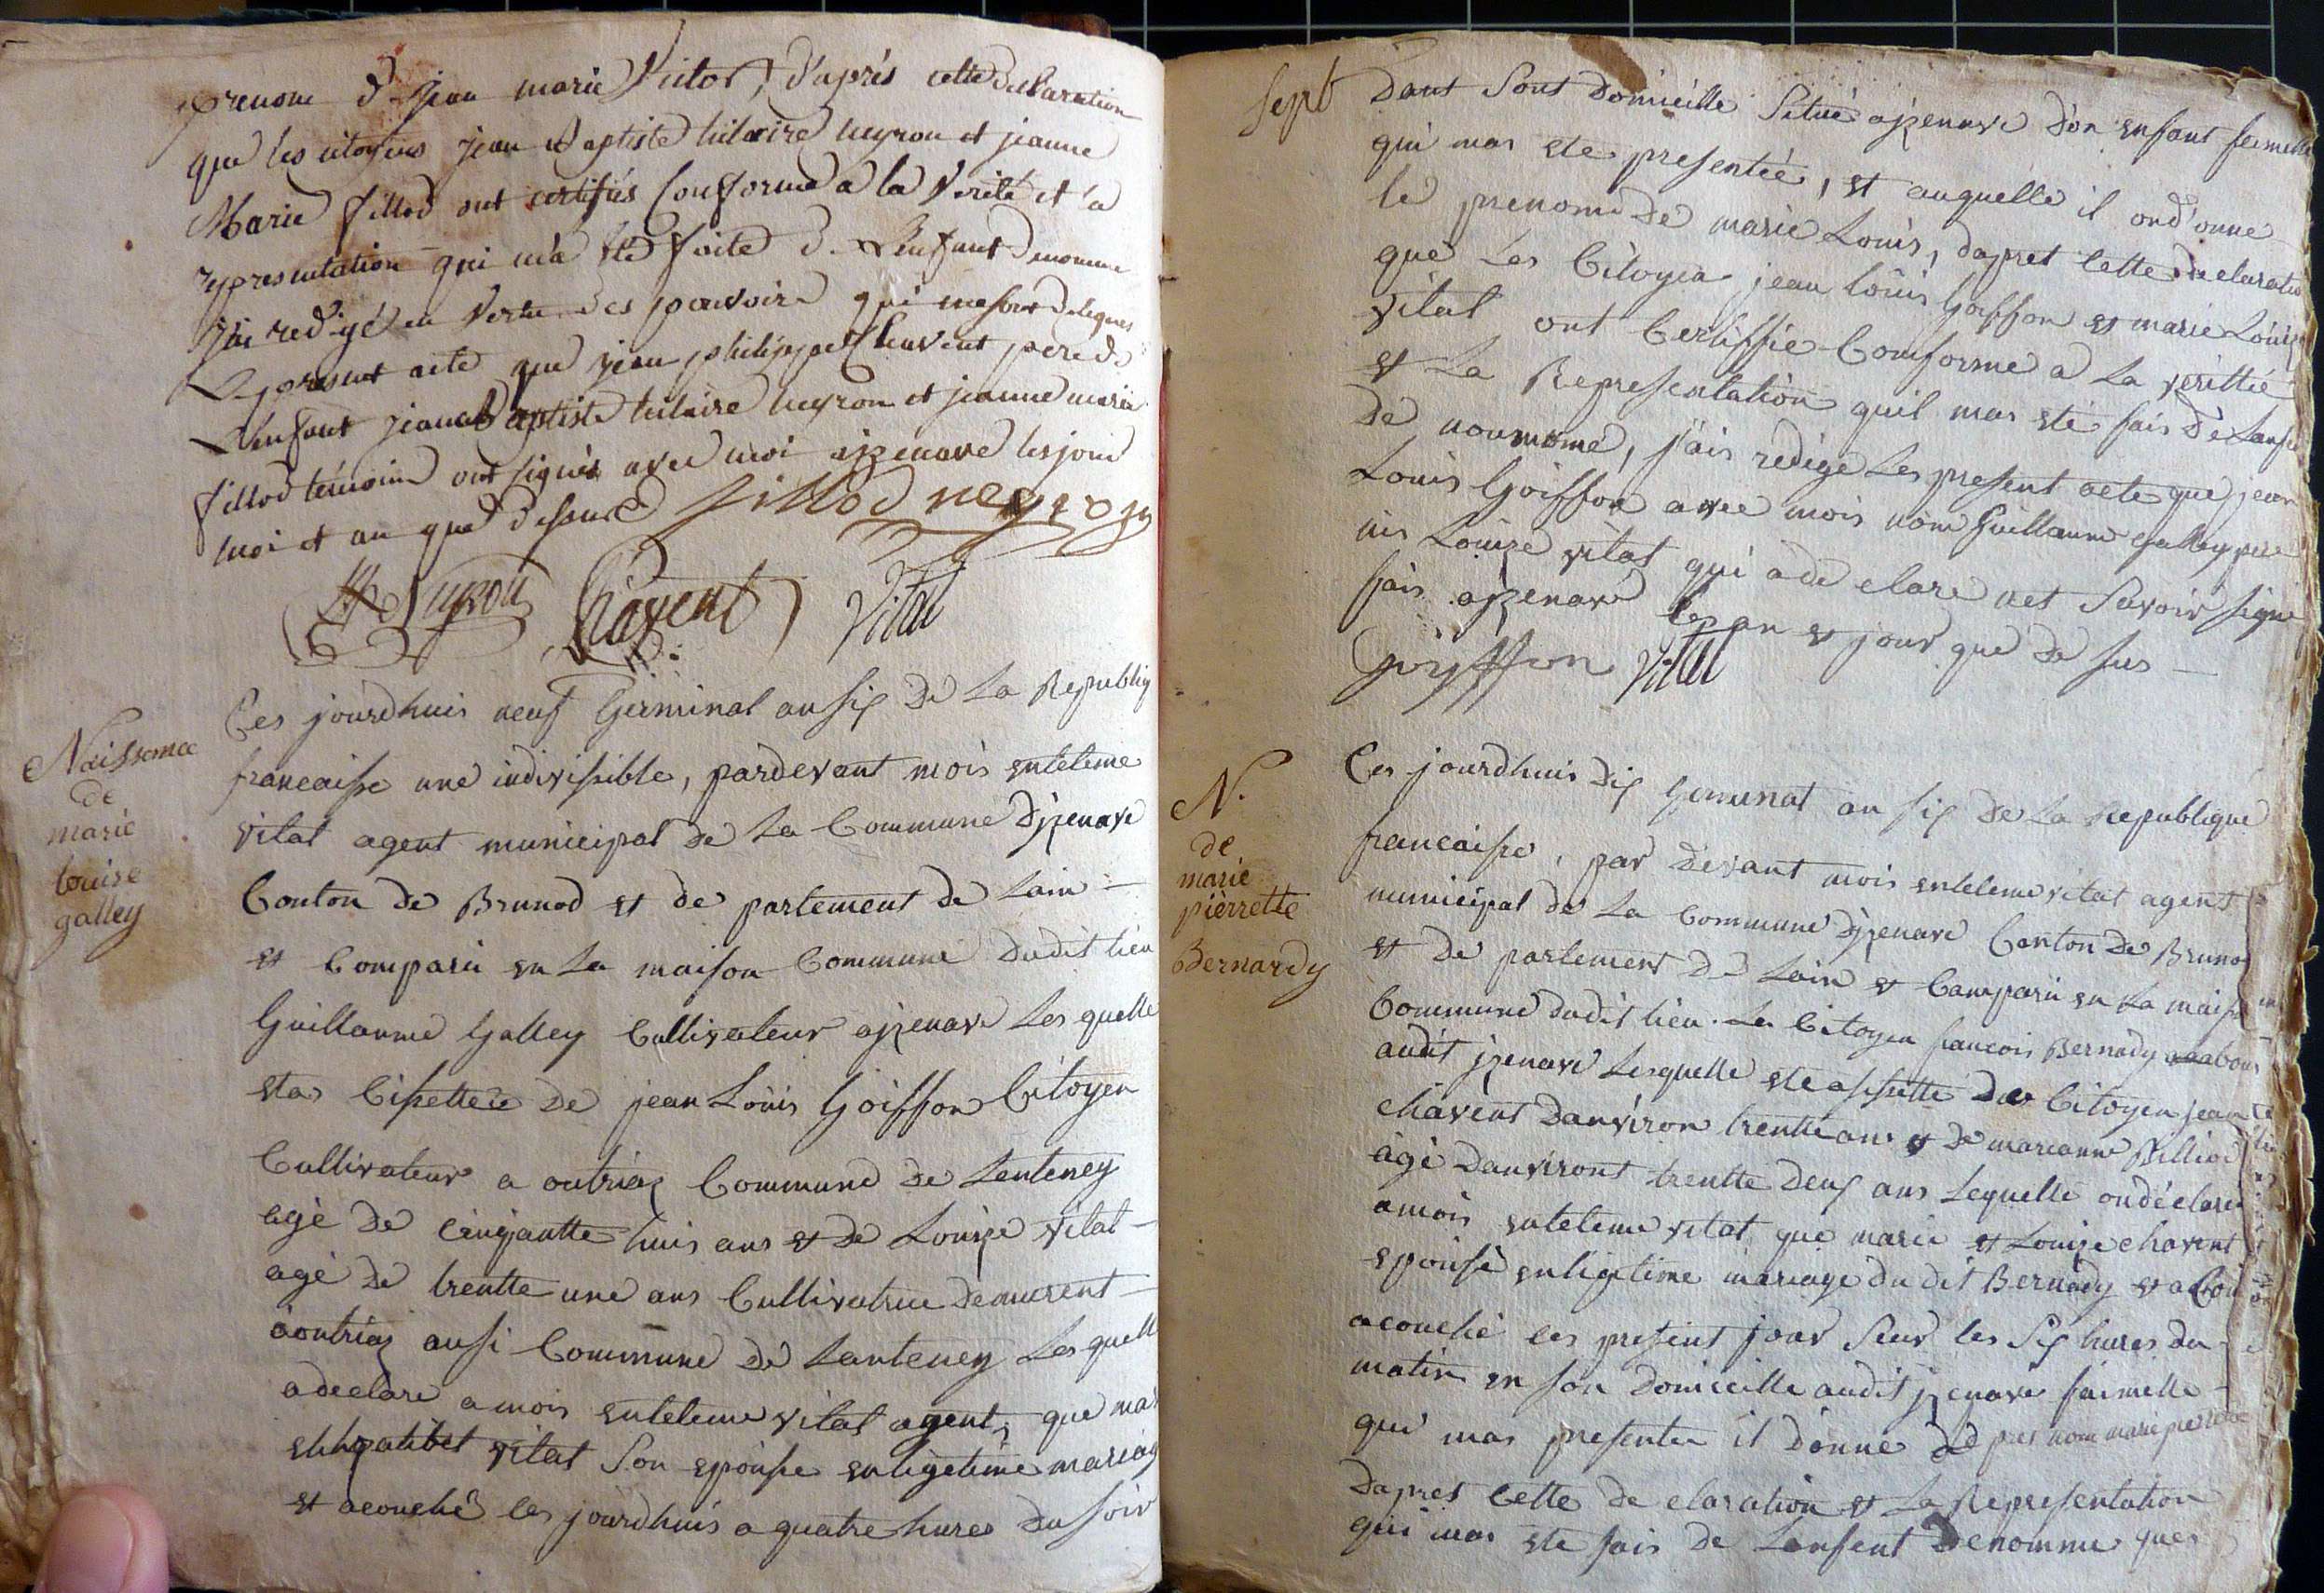 prenom d jean marie Victor, d'aprés cette declaration
que les citoyens jean Baptiste hilaire neyron et jeanne
Marie fillod ont certifiés Conforme a la Verité et a
representation qui m'a eté faite d. L'enfant denomme
j'ai redigé en Vertu des pouvoirs qui me sont delegues
Le present acte que jean philippe Chavent pere de
L'enfant jean Baptiste hilaire neyron et jeanne marie
fillod témoins ont signés avec moi a izenave les jour
moi et an que dessus fillod neyron
Neyron Chavent Vital
Naissance
de
marie
louise
galley
Ces jourdhuis neuf Germinal an six de La Republiq
francaisse une indivisible, pardevant mois entelme
vital agent municipal de La Commune dizenave
Conton de Brunod et de partement de Lain
et Comparu en La maison Commune dudit lieu
Guillaume Galley Cultivateur a izenave Les quelle
etas Cisettee de jean Louis Goiffon Citoyen
Cultivateur a outriaz Commune de Lenteney
agé de cinqantte huis ans et de Louize vital
agé de trentte une ans Cultivatrice demeurent
aoutriaz ausi Commune de Lanteney Les quell
adeclare a mois entelme vital agent, que mar
vital Son epouse enligetime mariag
et acouché les jourdhuis a quatre hures du soir
sept
Dant Sont Domicille Situé a izenave d'on enfant femelle
qui mas ete presentée, et auquelle il ond'onne
le prenom de marie Louis, dapret Cette declaratio
que Les Citoyen jean Louis Goiffon et marie Louis
vital ont Certiffié Comforme a La verittée
et La Representation quil mas eté fais de Lanfa
de nommé, j'ais redigé Les present acte que jean
Louis Goiffon avec mois non Guillaume galley pere
nis Louize vital qui a de clare net Savoir signe
fais a izenave les an et jour que de sus
goyffon Vital
N.
de
marie
pierrette
Bernardy
Ces jourdhuis dix Germinal an six de La Republique
francaisse, par devant mois entelme vital agent
municipal de La Commune dizenave Canton de Brunod
et de partement de Lain et Comparu en La maiso
Commune dudit lieu. Le Citoyen francois Bernady
audit izenave Lesquelle ete assistte du Citoyen jean
chavent danviron trentte ans et de marianne fillod
agé danviront trentte deux ans Lequelle ondéclare
amois entelme vital que marie et Louize chavent
epouse enligitime mariage du dit Bernady et a
acouché les present jour Seur les Six hures du
matin en son Domicille audit izenave faimelle
qui mas presenter il donne de pres nom marie pierrette
Dapres Cette de claration et La Representation
qui mas ete fais de Lanfent Denomme ques